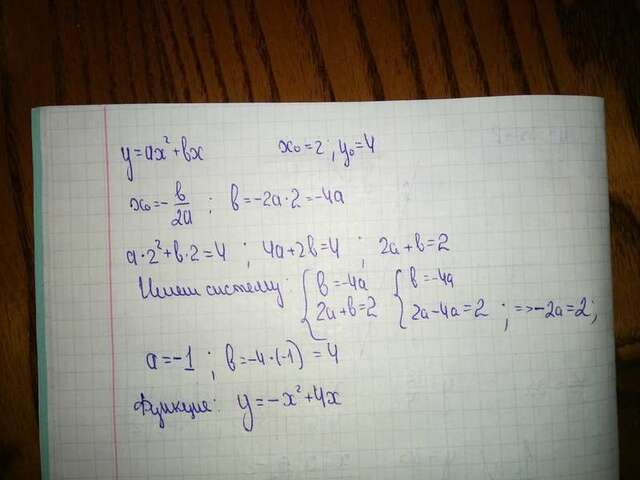 y=ax²+bx x₀=2; y₀=4
x₀=-b/2a ; b=-2a·2=-4a
a·2²+b·2=4 ; 4a+2b=4 ; 2a+b=2
Имеем систему: { b=-4a { b=-4a
2a+b=2 ; 2a-4a=2 ; =>-2a=2;
a=-1 ; b=-4·(-1)=4
Функция: y=-x²+4x